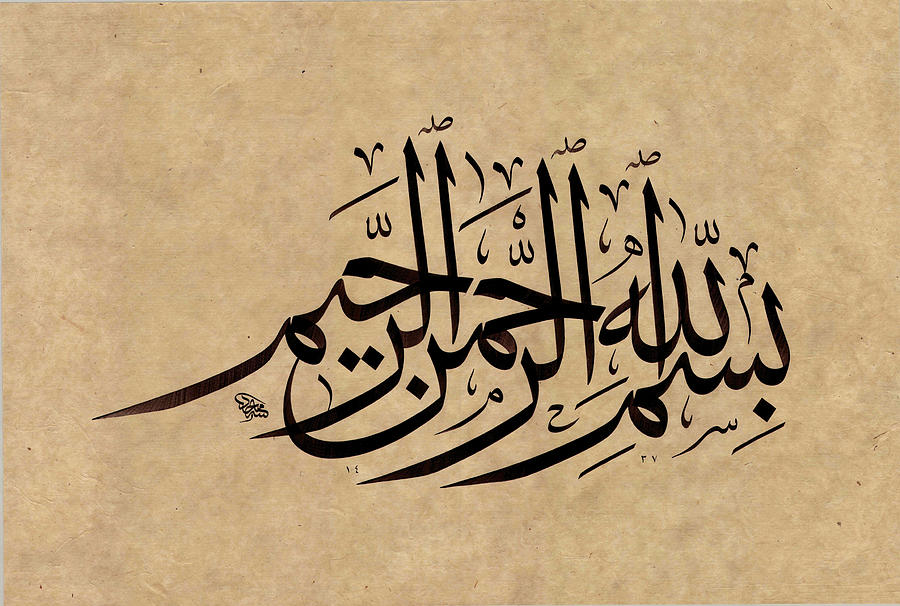 بِسْمِ اللّٰهِ الرَّحْمٰنِ الرَّحِيمِ
١٤٣٧